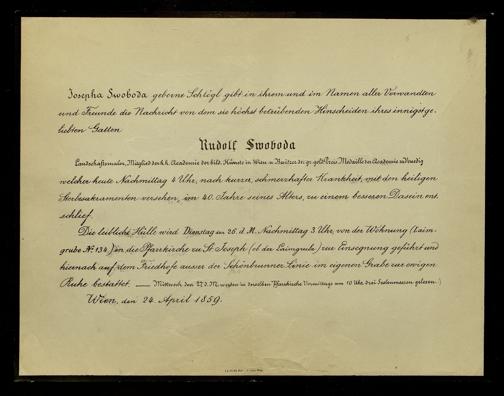 Josepha Swoboda geborne Schlögl gibt in ihrem und im Namen aller Verwandten
und Freunde die Nachricht von dem sie höchst betrübenden Hinscheiden ihres innigstge-
liebten Gatten
Rudolf Swoboda
Landschaftsmaler, Mitglied der k.k. Academie der bild. Künste in Wien u. Besitzer der gr. gold. Preis Medaille der Academie zu Venedig
welcher heute Nachmittag 4 Uhr, nach kurzer, schmerzhafter Krankheit, mit den heiligen
Sterbesakramenten versehen, im 40. Jahre seines Alters, zu einem besseren Dasein ent-
schlief.
Die leibliche Hülle wird Dienstag den 26. d. M. Nachmittag 3 Uhr, von der Wohnung (Laim-
grube No. 134) in die Pfarrkirche zu St. Joseph (ob der Laimgrube) zur Einsegnung geführt und
hiernach auf dem Friedhofe ausser der Schönbrunner Linie im eigenen Grabe zur ewigen
Ruhe bestattet. — Mittwoch den 27. d. M. werden in derselben Pfarrkirche Vormittags um 10 Uhr drei Seelenmessen gelesen.
Wien, den 24. April 1859.